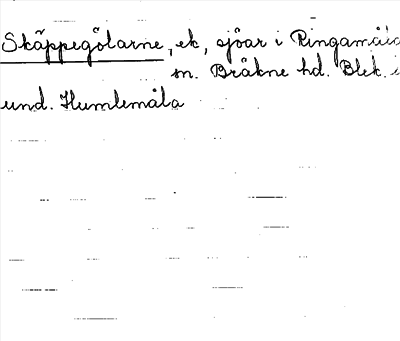 Skäppegölarne, ek, sjöar i Ringamåla
sn. Bräkne hd. Blek. i
und. Humlemåla